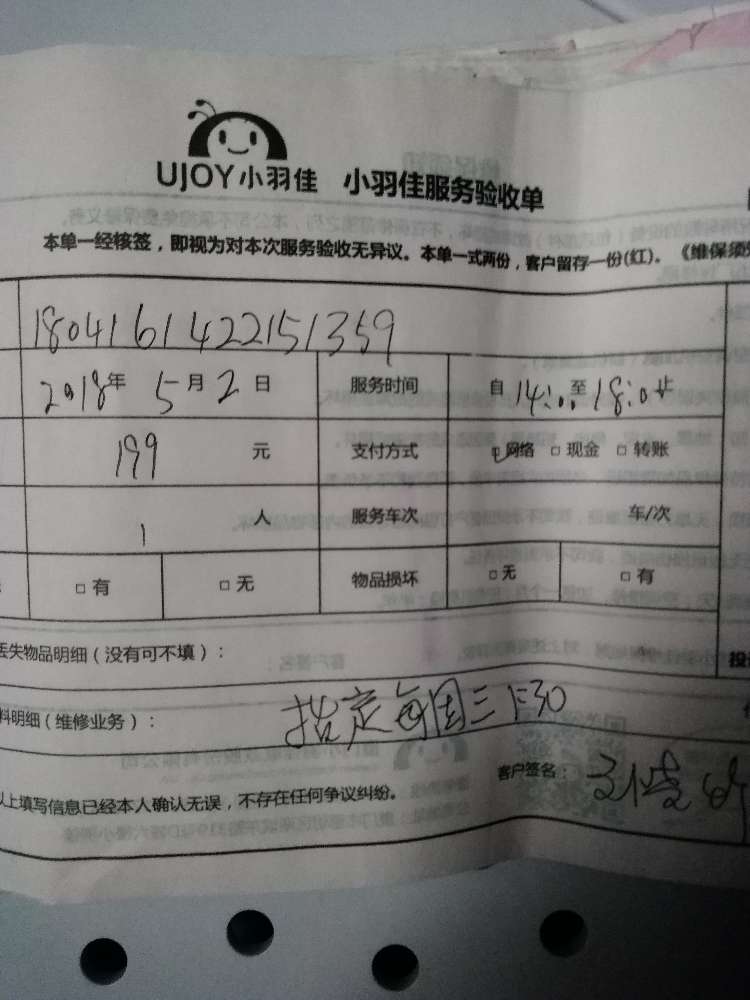 UJOY小羽佳 小羽佳服务验收单
本单一经核签，即视为对本次服务验收无异议。本单一式两份，客户留存一份(红)。《维保须知
1804161422151359
2018年 5月2日 服务时间 自14:00至18:00止
199 元 支付方式 网络 □ 现金 □ 转账
1 人 服务车次 车/次
□ 有 □ 无 物品损坏 □ 无 □ 有
丢失物品明细（没有可不填）： 投
料明细（维修业务）： 指定每周三 1:30
客户签名：
以上填写信息已经本人确认无误，不存在任何争议纠纷。